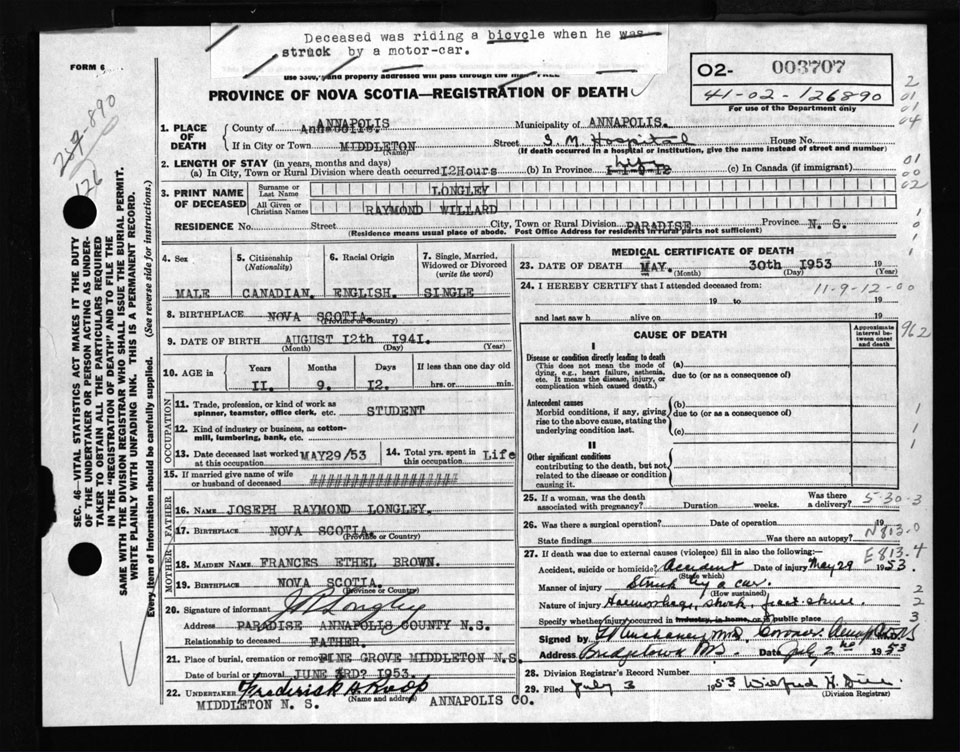 Deceased was riding a bicycle when he was
struck by a motor-car.
FORM 6
PROVINCE OF NOVA SCOTIA—REGISTRATION OF DEATH
02- 003707
41-02-126890
For use of the Department only
257-890
126
1. PLACE OF DEATH
County of ANNAPOLIS Municipality of ANNAPOLIS.
If in City or Town MIDDLETON (Name) Street S. M. Hospital House No.
(If death occurred in a hospital or institution, give the name instead of street and number)
2. LENGTH OF STAY (in years, months and days)
(a) In City, Town or Rural Division where death occurred 12Hours (b) In Province Life (c) In Canada (if immigrant)
3. PRINT NAME OF DECEASED
Surname or Last Name LONGLEY
All Given or Christian Names RAYMOND WILLARD
RESIDENCE No. Street City, Town or Rural Division PARADISE Province N. S.
(Residence means usual place of abode. Post Office Address for residents in rural parts not sufficient)
SEC. 46—VITAL STATISTICS ACT MAKES IT THE DUTY
OF THE UNDERTAKER OR PERSON ACTING AS UNDER-
TAKER TO OBTAIN ALL THE PARTICULARS REQUIRED
IN THE "REGISTRATION OF DEATH" AND TO FILE THE
SAME WITH THE DIVISION REGISTRAR WHO SHALL ISSUE THE BURIAL PERMIT.
WRITE PLAINLY WITH UNFADING INK. THIS IS A PERMANENT RECORD.
Every item of Information should be carefully supplied. (See reverse side for instructions.)
4. Sex
MALE
5. Citizenship (Nationality)
CANADIAN.
6. Racial Origin
ENGLISH.
7. Single, Married, Widowed or Divorced (write the word)
SINGLE
8. BIRTHPLACE NOVA SCOTIA.
(Province or Country)
9. DATE OF BIRTH AUGUST 12th 1941.
(Month) (Day) (Year)
10. AGE in Years Months Days If less than one day old
11. 9. 12. hrs. or min.
OCCUPATION
11. Trade, profession, or kind of work as spinner, teamster, office clerk, etc. STUDENT
12. Kind of industry or business, as cotton-mill, lumbering, bank, etc.
13. Date deceased last worked at this occupation MAY29/53 14. Total yrs. spent in this occupation Life
15. If married give name of wife or husband of deceased ####################
FATHER
16. NAME JOSEPH RAYMOND LONGLEY.
17. BIRTHPLACE NOVA SCOTIA
(Province or Country)
MOTHER
18. MAIDEN NAME FRANCES ETHEL BROWN.
19. BIRTHPLACE NOVA SCOTIA.
(Province or Country)
20. Signature of informant J R Longley
Address PARADISE ANNAPOLIS COUNTY N.S.
Relationship to deceased FATHER.
21. Place of burial, cremation or removal PINE GROVE MIDDLETON N.S.
Date of burial or removal JUNE 3RD? 1953.
22. UNDERTAKER Frederick H. Roop
(Name and address)
MIDDLETON N. S. ANNAPOLIS CO.
MEDICAL CERTIFICATE OF DEATH
23. DATE OF DEATH MAY. 30th 1953 19
(Month) (Day) (Year)
24. I HEREBY CERTIFY that I attended deceased from: 11-9-12-00
19 to 19
and last saw h alive on 19
CAUSE OF DEATH
Approximate interval between onset and death
962
I
Disease or condition directly leading to death (a)
(This does not mean the mode of dying, e.g., heart failure, asthenia, etc. It means the disease, injury, or complication which caused death.)
due to (or as a consequence of)
Antecedent causes
Morbid conditions, if any, giving rise to the above cause, stating the underlying condition last.
(b)
due to (or as a consequence of)
(c)
II
Other significant conditions
contributing to the death, but not related to the disease or condition causing it.
25. If a woman, was the death associated with pregnancy? Duration weeks. Was there a delivery? 5-30-3
26. Was there a surgical operation? Date of operation 19
State findings Was there an autopsy? N813.0
27. If death was due to external causes (violence) fill in also the following:— E813.4
Accident, suicide or homicide? Accident Date of injury May 29 1953.
(State which)
Manner of injury Struck by a car.
(How sustained)
Nature of injury Haemorrhage, shock, fract. skull
Specify whether injury occurred in industry, in home, or in public place
Signed by M.D. Coroner
Address Bridgetown N.S. Date July 2nd 1953
28. Division Registrar's Record Number
29. Filed July 3 1953 Wilfred H.
(Division Registrar)